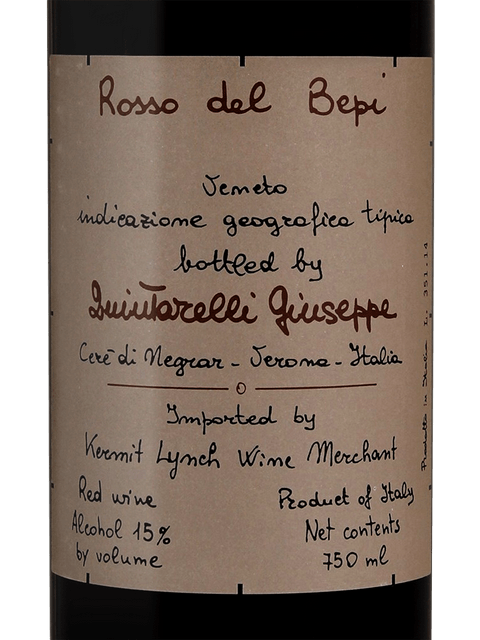 Rosso del Bepi
Veneto
indicazione geografica tipica
bottled by
Quintarelli Giuseppe
Cerè di Negrar - Verona - Italia
Imported by
Kermit Lynch Wine Merchant
Red wine
Alcohol 15%
by volume
Product of Italy
Net contents
750 ml
Prodotto in Italia L. 351.14